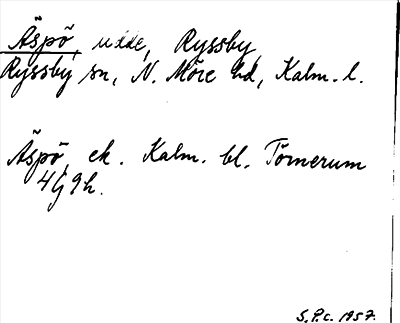 Äspö, udde, Ryssby,
Ryssby sn, N. Möre hd, Kalm. l.
Äspö, ek. Kalm. bl. Törnerum
4G9h.
S.P.c. 1957.